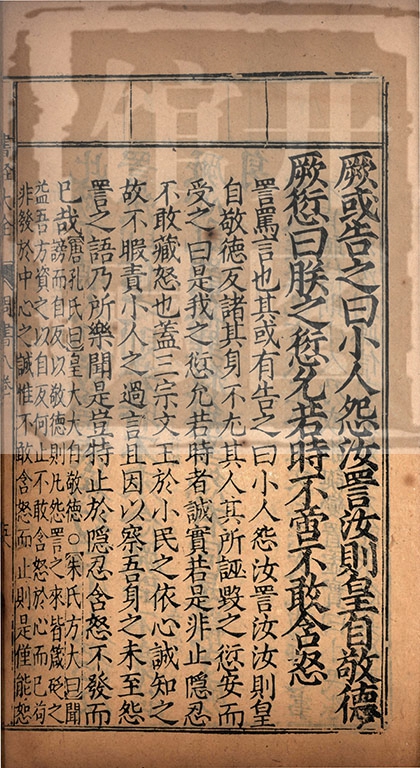 厥或告之曰小人怨汝詈汝則皇自敬德
厥愆曰朕之愆允若時不啻不敢含怒
詈罵言也其或有告之曰小人怨汝詈汝汝則皇
自敬德反諸其身不尤其人其所誣毀之愆安而
受之曰是我之愆允若時者誠實若是非止隱忍
不敢藏怒也蓋三宗文王於小民之依心誠知之
故不暇責小人之過言且因以察吾身之未至怨
詈之語乃所樂聞是豈特止於隱忍含怒不發而
已哉
孔氏曰皇大大自敬德○朱氏方大曰聞
謗而自反以敬德則凡怨詈之來皆箴砭之
益吾方資之以自反何止不敢含怒於心而已苟
非發於中心之誠惟不敢含怒而止則是僅能恕
書經大全
周書八卷